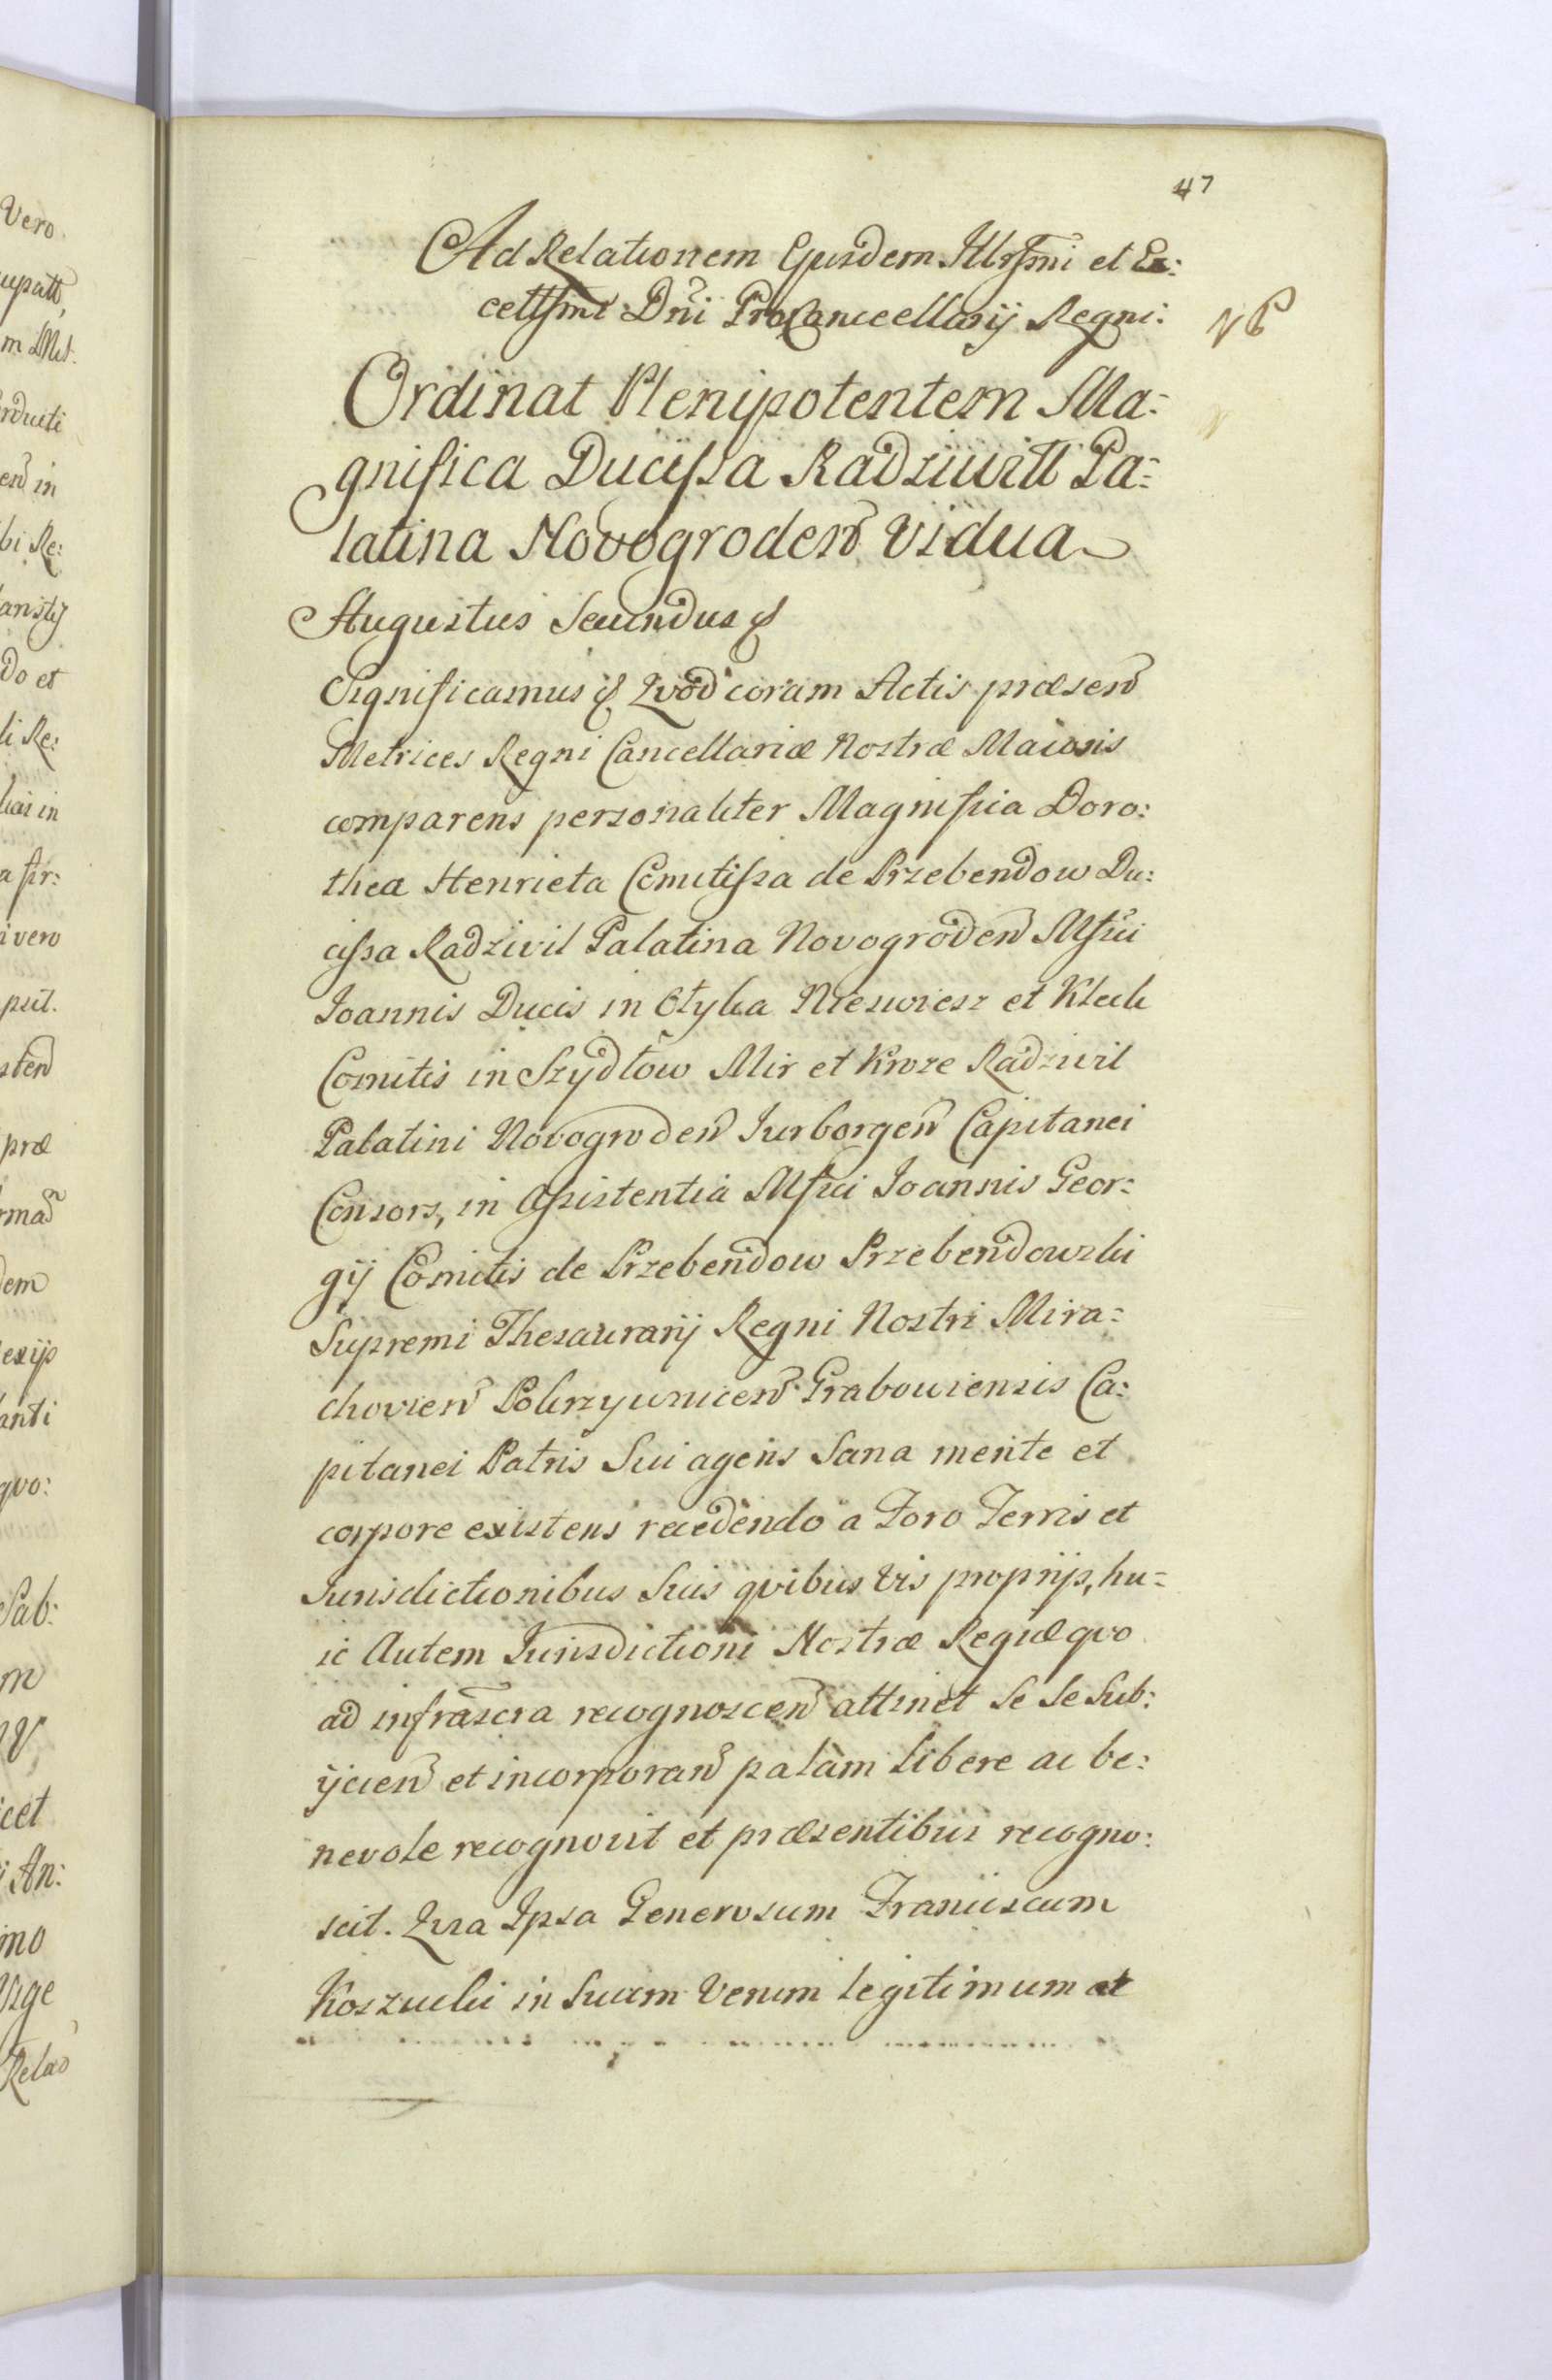 47
Ad Relationem Ejusdem Illrsmi et Ex:
cellsmi Dni ProCancellarij Regni:
Ordinat Plenipotentem Ma:
gnifica Ducissa Radziwill Pa:
latina Novogroden Vidua
Augustus Secundus &
Significamus & Qvod coram Actis præsen
Metrices Regni Cancellariæ Nostræ Maioris
comparens personaliter Magnifica Doro:
thea Henrieta Comitissa de Przebendow Du:
cissa Radzivil Palatina Novogroden Mfici
Joannis Ducis in Otyka Nieswiesz et Kleck
Comitis in Szydłow Mir et Kroze Radzivil
Palatini Novogroden Jurborgen Capitanei
Consors, in Assistentia Mfici Joannis Geor:
gij Comitis de Przebendow Przebendowski
Supremi Thesaurarij Regni Nostri Mira:
chovien Pokrzywnicen Grabowiensis Ca:
pitanei Patris Sui agens Sana mente et
corpore existens recedendo a Foro Terris et
Jurisdictionibus Suis qvibus Vis proprijs, hu:
ic Autem Jurisdictioni Nostræ Regiæ qvo
ad infrascra recognoscen attinet Se Se Sub:
ijcien et incorporan palam libere ac be:
nevole recognovit et præsentibus recogno:
scit. Qvia Ipsa Generosum Franciscum
Koszucki in Suum Verum legitimum et